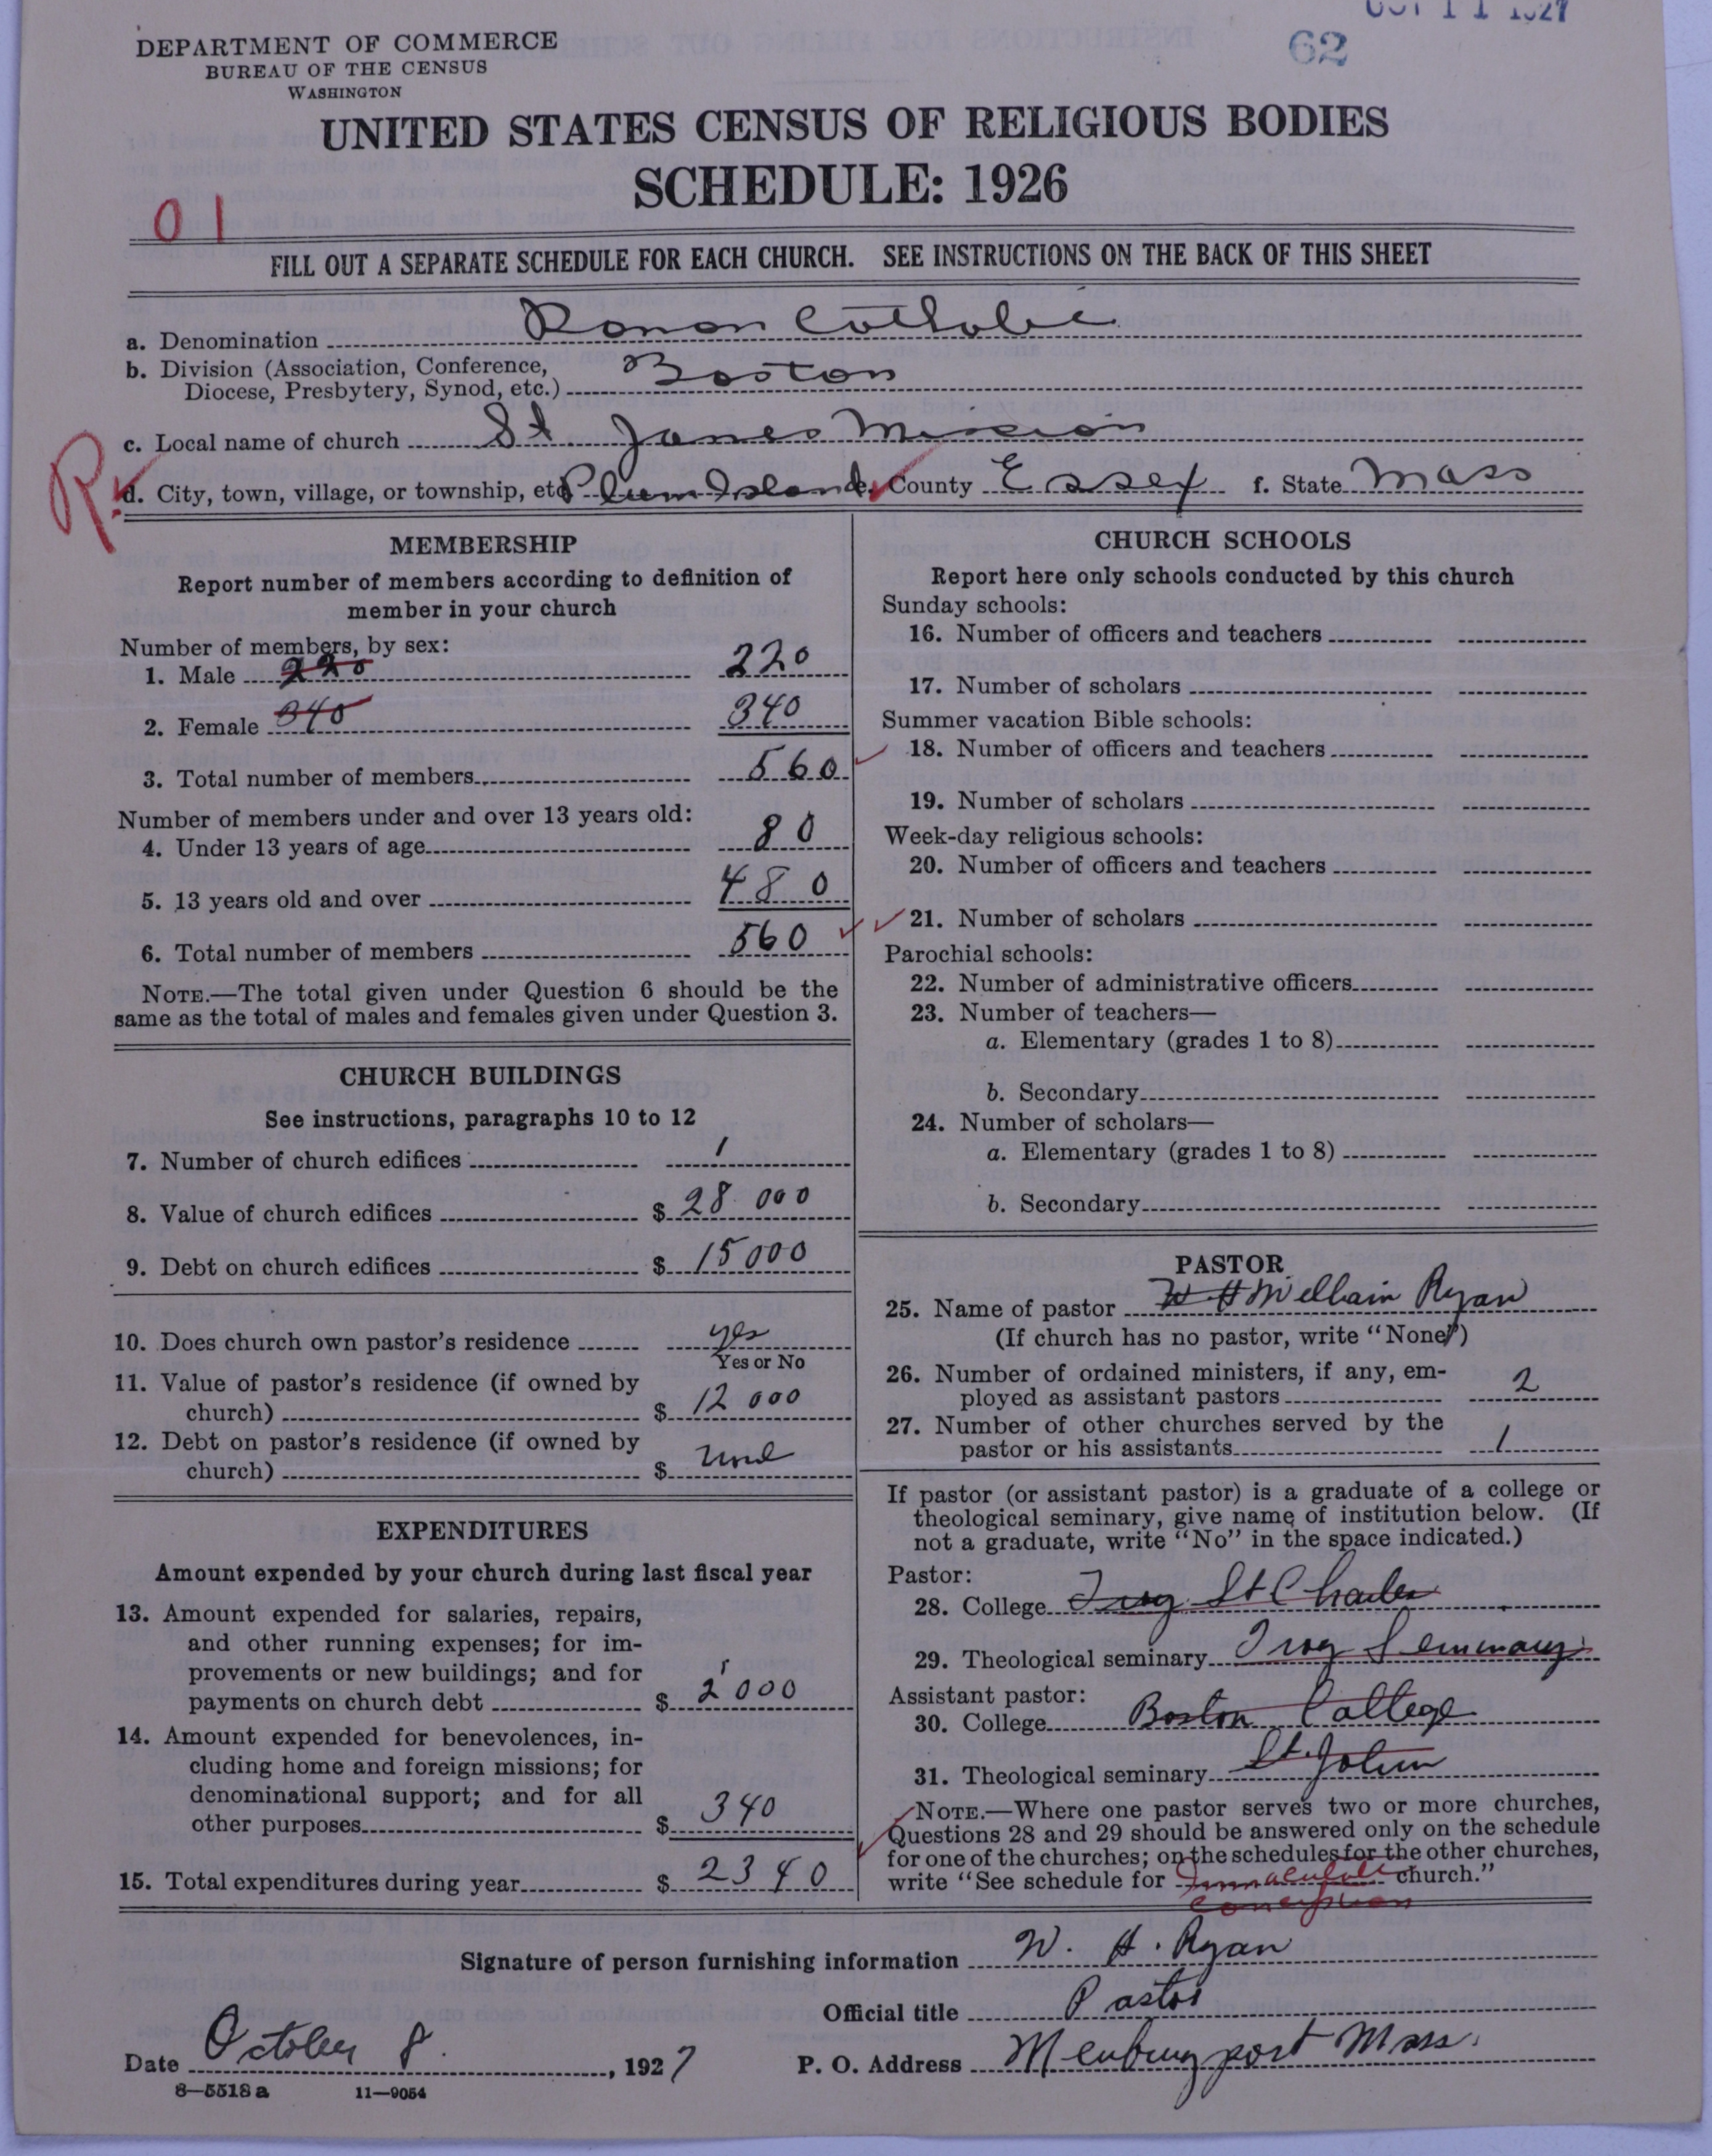 OCT 11 1927
62
DEPARTMENT OF COMMERCE
BUREAU OF THE CENSUS
WASHINGTON
UNITED STATES CENSUS OF RELIGIOUS BODIES
SCHEDULE: 1926
01
FILL OUT A SEPARATE SCHEDULE FOR EACH CHURCH. SEE INSTRUCTIONS ON THE BACK OF THIS SHEET
a. Denomination Roman Catholic
b. Division (Association, Conference,
Diocese, Presbytery, Synod, etc.) Boston
c. Local name of church St James Mission
R
d. City, town, village, or township, etc. Plum Island e. County Essex f. State Mass
MEMBERSHIP
Report number of members according to definition of
member in your church
Number of members, by sex:
1. Male 220 220
2. Female 340 340
3. Total number of members 560
Number of members under and over 13 years old:
4. Under 13 years of age 80
5. 13 years old and over 480
6. Total number of members 560
NOTE.—The total given under Question 6 should be the
same as the total of males and females given under Question 3.
CHURCH BUILDINGS
See instructions, paragraphs 10 to 12
7. Number of church edifices 1
8. Value of church edifices $ 28 000
9. Debt on church edifices $ 15000
10. Does church own pastor's residence yes
Yes or No
11. Value of pastor's residence (if owned by
church) $ 12 000
12. Debt on pastor's residence (if owned by
church) $ none
EXPENDITURES
Amount expended by your church during last fiscal year
13. Amount expended for salaries, repairs,
and other running expenses; for im-
provements or new buildings; and for
payments on church debt $ 2000
14. Amount expended for benevolences, in-
cluding home and foreign missions; for
denominational support; and for all
other purposes $ 340
15. Total expenditures during year $ 2340
CHURCH SCHOOLS
Report here only schools conducted by this church
Sunday schools:
16. Number of officers and teachers
17. Number of scholars
Summer vacation Bible schools:
18. Number of officers and teachers
19. Number of scholars
Week-day religious schools:
20. Number of officers and teachers
21. Number of scholars
Parochial schools:
22. Number of administrative officers
23. Number of teachers—
a. Elementary (grades 1 to 8)
b. Secondary
24. Number of scholars—
a. Elementary (grades 1 to 8)
b. Secondary
PASTOR
25. Name of pastor W H William Ryan
(If church has no pastor, write "None")
26. Number of ordained ministers, if any, em-
ployed as assistant pastors 2
27. Number of other churches served by the
pastor or his assistants 1
If pastor (or assistant pastor) is a graduate of a college or
theological seminary, give name of institution below. (If
not a graduate, write "No" in the space indicated.)
Pastor:
28. College Troy St Charles
29. Theological seminary Troy Seminary
Assistant pastor:
30. College Boston College
31. Theological seminary St. John
NOTE.—Where one pastor serves two or more churches,
Questions 28 and 29 should be answered only on the schedule
for one of the churches; on the schedules for the other churches,
write "See schedule for Immaculate church."
Conception
Signature of person furnishing information W. H. Ryan
Official title Pastor
Date October 8, 1927 P. O. Address Newburyport Mass.
8—5518 a 11—9054